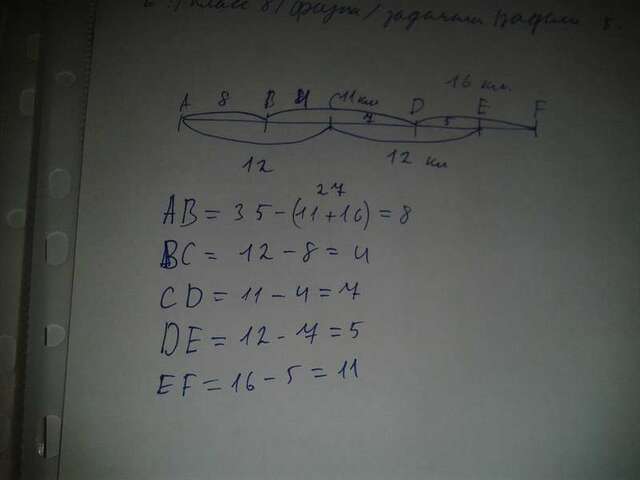 класс 8 / физика / задачи
16 км.
A 8 B 4 C 11 км D E F
7 5
12 12 км
27
AB = 35 - (11 + 16) = 8
BC = 12 - 8 = 4
CD = 11 - 4 = 7
DE = 12 - 7 = 5
EF = 16 - 5 = 11